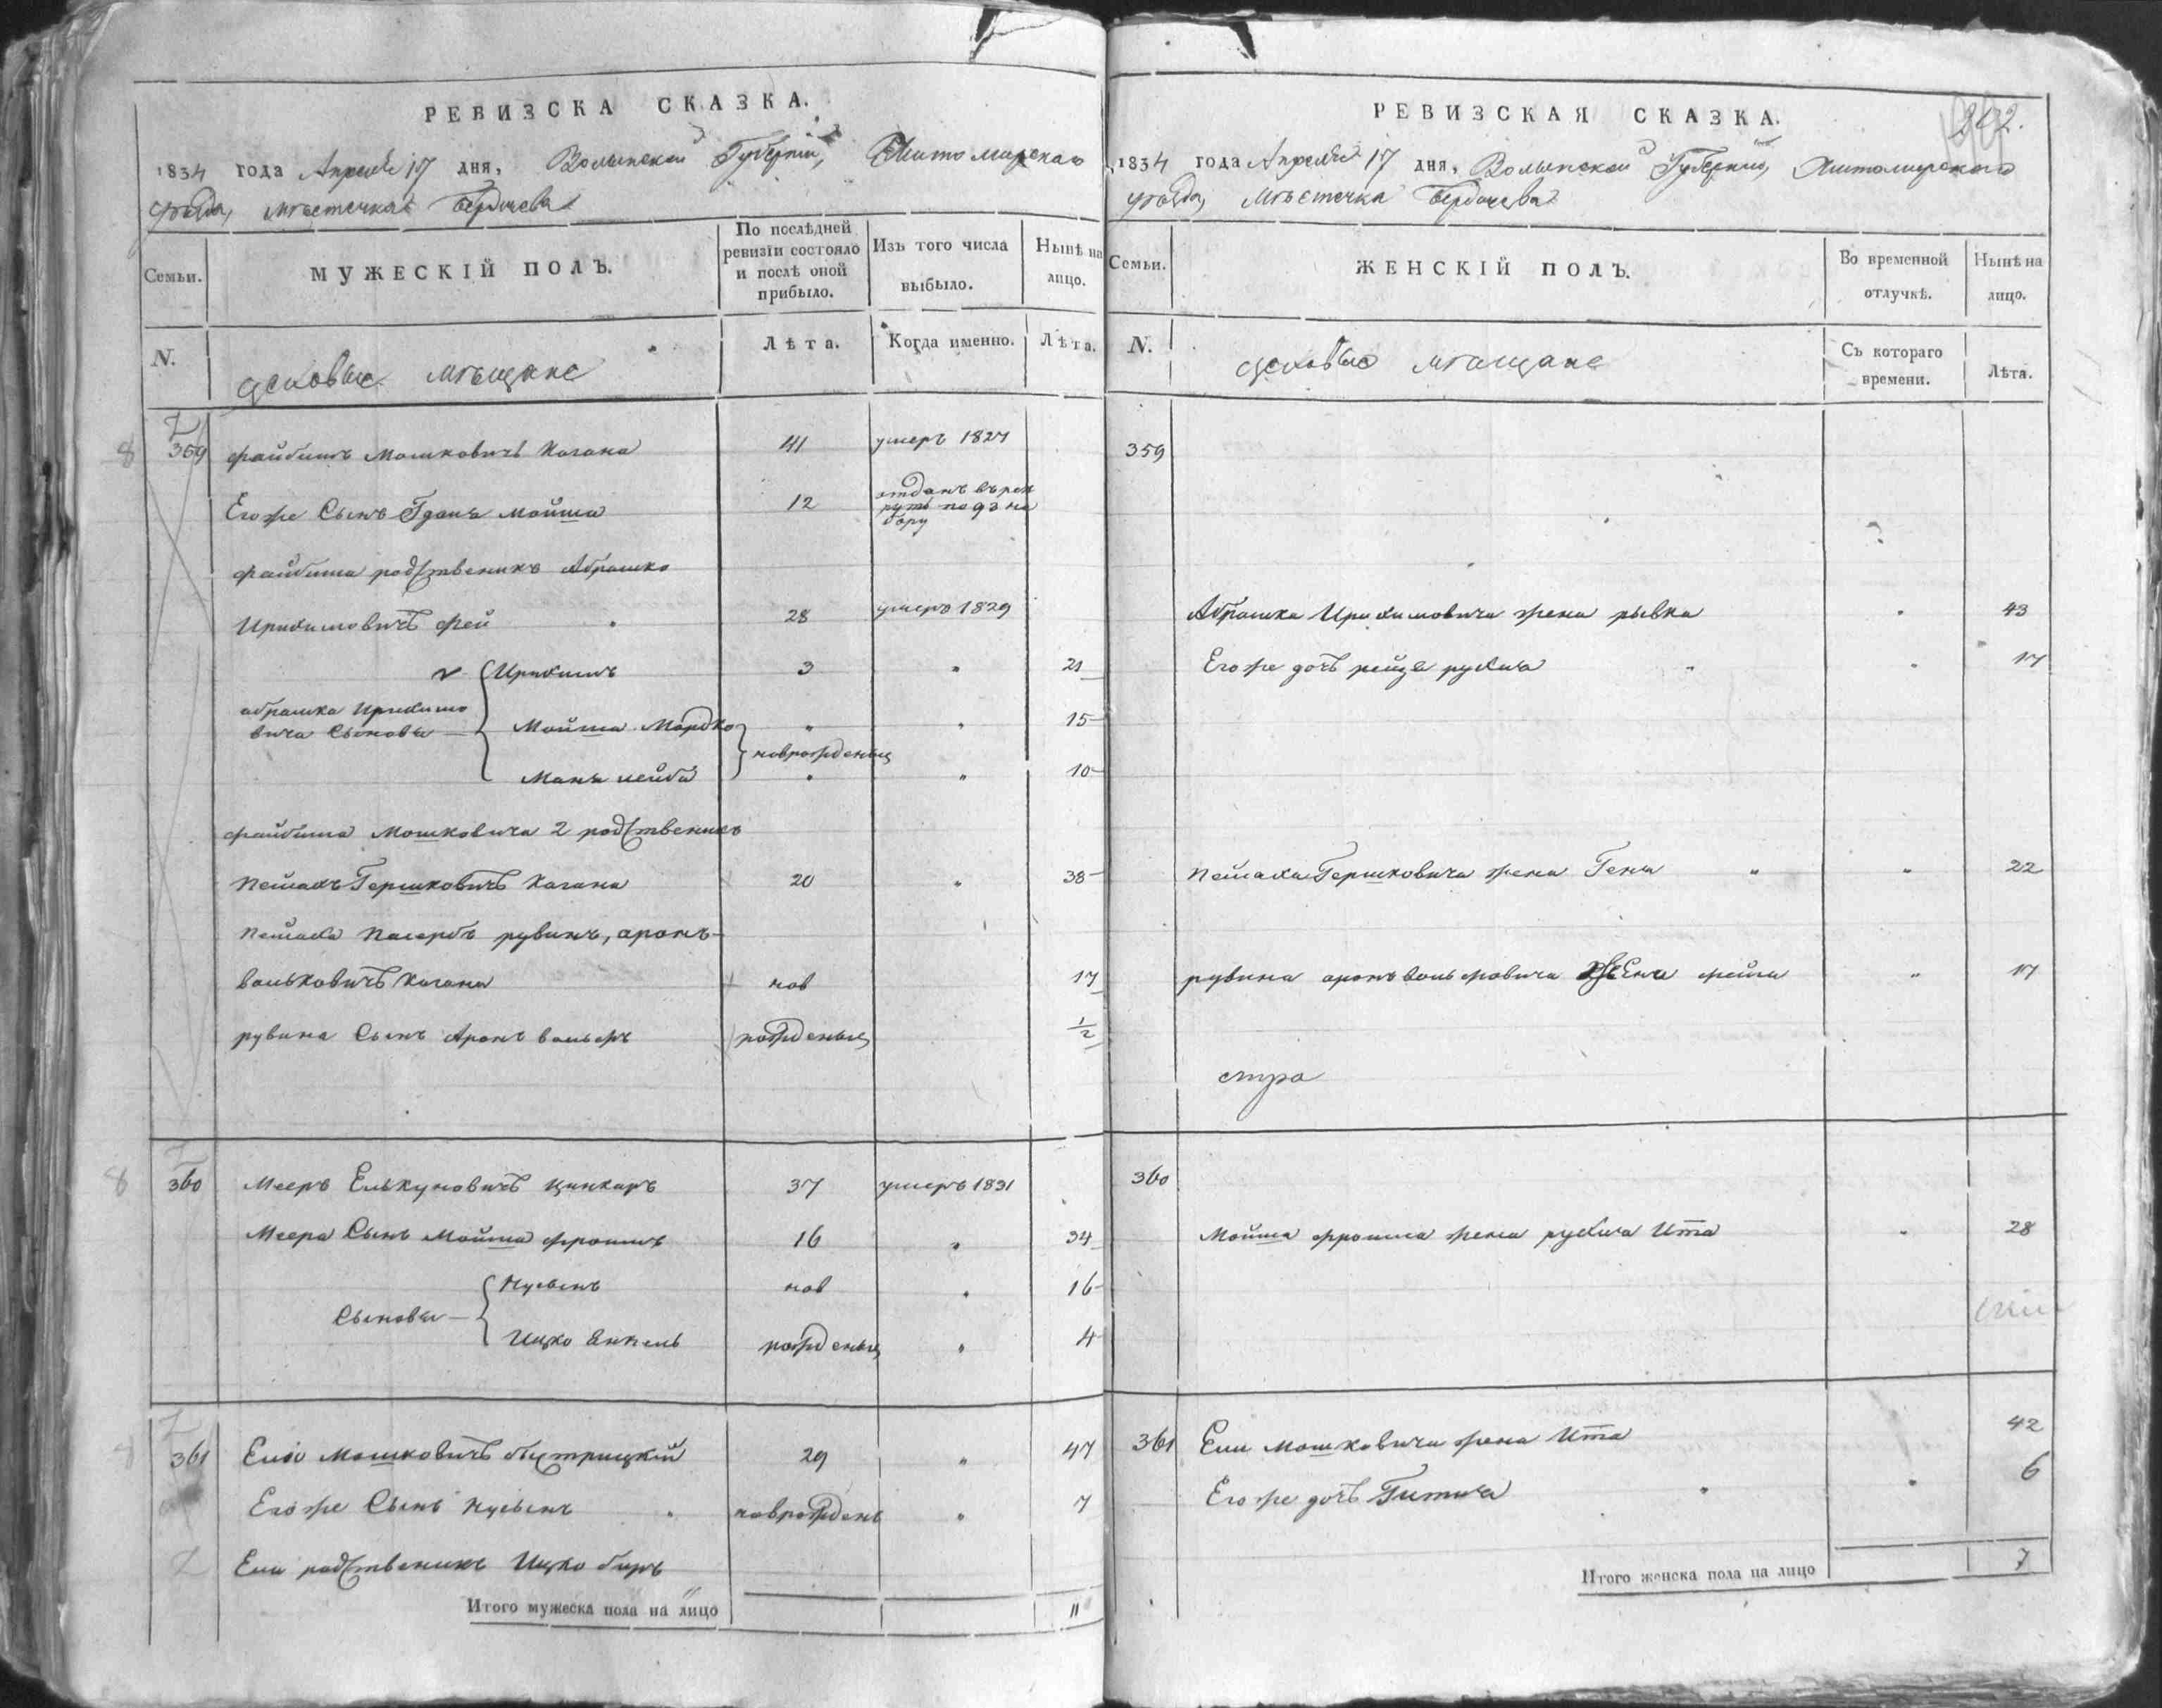 РЕВИЗСКА СКАЗКА.
1834 года Апреля 17 дня, Волынской Губернии, Житомирскаго
уѣзда, мѣстечка Бердичева
Семьи.
МУЖЕСКІЙ ПОЛЪ.
По послѣдней
ревизіи состояло
и послѣ оной
прибыло.
Изъ того числа
выбыло.
Нынѣ на
лицо.
N.
цеховые мѣщане
Лѣта.
Когда именно.
Лѣта.
359 Файбишъ Мошковичъ Кагана 41 умеръ 1827
Егоже Сынъ Гданя Мойша 12 отданъ въ рек
руты по 93 на
бору
Файбиша родственикъ Абрашко
Ирихимовичъ Фей 28 умеръ 1829
Ирихимъ 3 " 21
абрашка Ирихимо
вича Сыновья
Мойша Мордко " " 15
новрожденыи
Маня лейба " " 10
Файбиша Мошковича 2 родственикъ
Пейсахъ Гершковичъ Кагана 20 " 38
Пейсаха Пасербъ рувинъ, аронъ-
вольковичъ Кагана нов 17
рувина Сынъ Аронъ вольфъ рожденыи 1/2
360 Мееръ Елькуновичъ Цинкаръ 37 умеръ 1831
Меера Сынъ Мойша Фроимъ 16 " 34
Нусынъ нов " 16
Сыновья
Ицко Янкель рожденыи " 4
361 Елio Мошковичъ быстрицкій 29 " 47
Егоже Сынъ Нусынъ новрожденъ " 7
Ели родственикъ Ицко беръ
Итого мужеска пола на лицо 11
РЕВИЗСКАЯ СКАЗКА.
242.
1834 года Апреля 17 дня, Волынской Губернии, Житомирскаго
уѣзда, Мѣстечка Бердичева
Семьи.
ЖЕНСКІЙ ПОЛЪ.
Во временной
отлучкѣ.
Нынѣ на
лицо.
N.
цеховые мѣщане
Съ котораго
времени.
Лѣта.
359
Абрашка Ирихимовича жена рывка " 43
Егоже дочь рейзя рухля " 17
Пейсаха Гершковича жена Геня " 22
рувина аронъ вольфовича жена фейга " 17
360
Мойша фроима жена рухля Ита " 28
361 Ели Мошковича жена Ита 42
Егоже дочь Гитля " 6
Итого женска пола на лицо 7